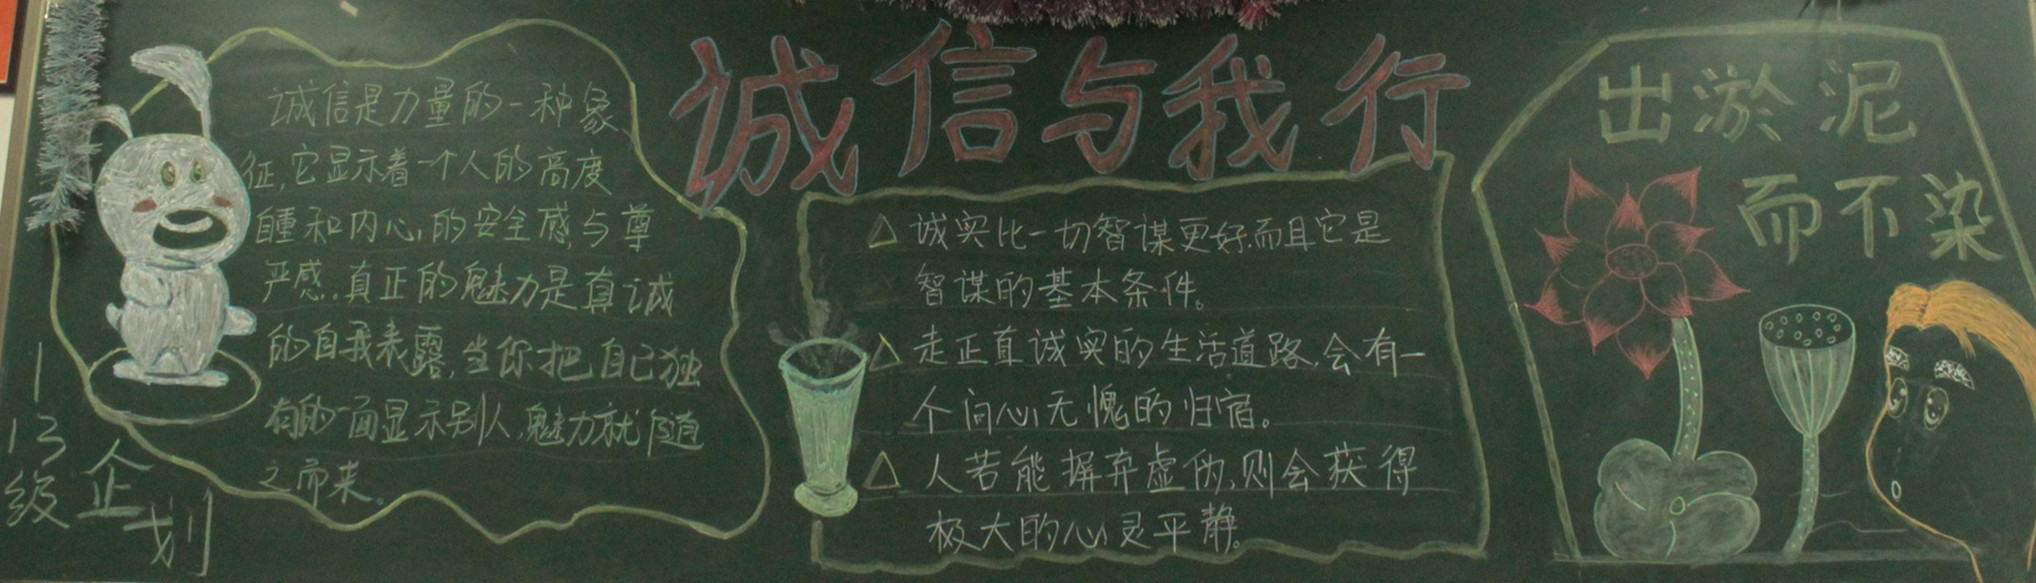 诚信与我行
诚信是力量的一种象
征,它显示着一个人的高度
自重和内心的安全感与尊
严感.真正的魅力是真诚
的自我表露,当你把自己独
有的一面显示别人,魅力就随
之而来。
△诚实比一切智谋更好,而且它是
智谋的基本条件。
△走正直诚实的生活道路,会有一
个问心无愧的归宿。
△人若能摒弃虚伪,则会获得
极大的心灵平静。
出淤泥
而不染
113级企划